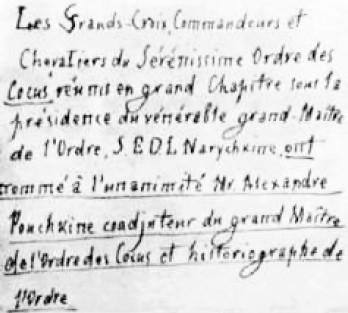 Les Grands-Croix, Commandeurs et
Chevaliers du Sérénissime Ordre des
Cocus, réunis en grand Chapitre sous la
présidence du vénérable grand-Maître
de l'Ordre, S. E. D. L. Narychkine, ont
nommé à l'unanimité Mr. Alexandre
Pouchkine coadjuteur du grand Maître
de l'Ordre des Cocus et historiographe de
l'Ordre